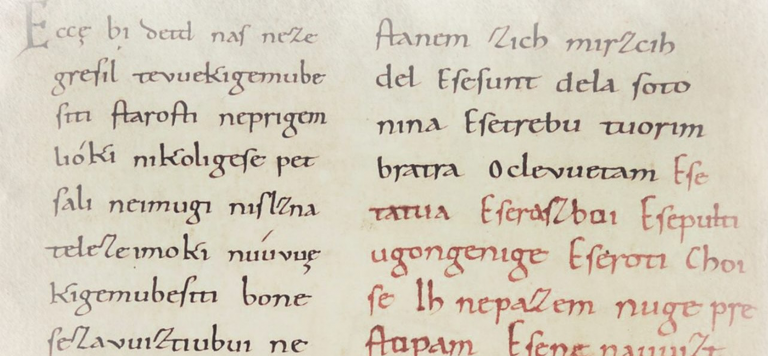 Eccę bi detd naſ neze
greſil tevuekigemube
ſiti ſtaroſti neprigem
lióki nikoligeſe pet
ſali neimugi niſlzna
telezeimoki núuvuę
kigemubeſiti bone
ſezavuiztiubui ne
ſtanem zich mirzcih
del Eſeſunt dela ſoto
nina Eſetrebu tuorim
bratra Oclevuetam Eſe
tatua Eſerazboi Eſepulti
ugongenige Eſeroti Choi
ſe Ih nepazem nuge pre
ſtopam Eſene nauuizt